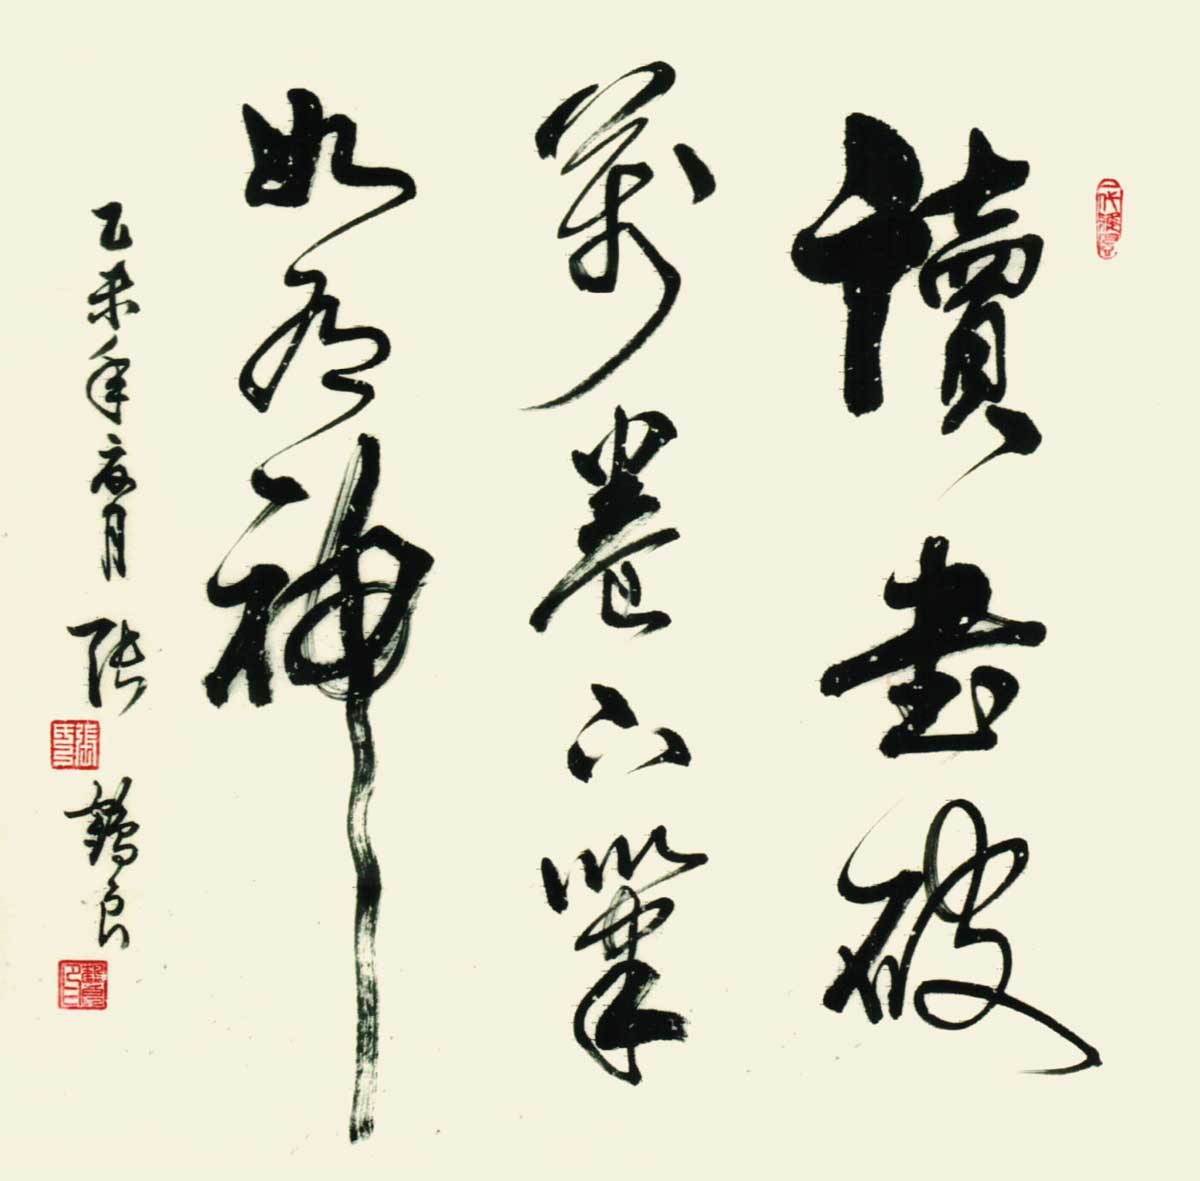 讀書破
萬卷下筆
如有神
乙未年夏月 張鶴良